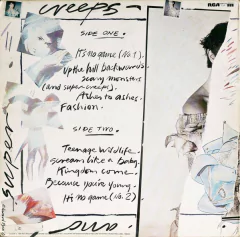 creeps
RCA
SIDE ONE.
It's no game (No. 1).
Up the hill backwards.
Scary monsters
(and super creeps).
Ashes to ashes.
Fashion.
SIDE TWO.
Teenage Wildlife.
Scream like a baby.
Kingdom come.
Because you're young.
It's no game (No. 2)
super
and